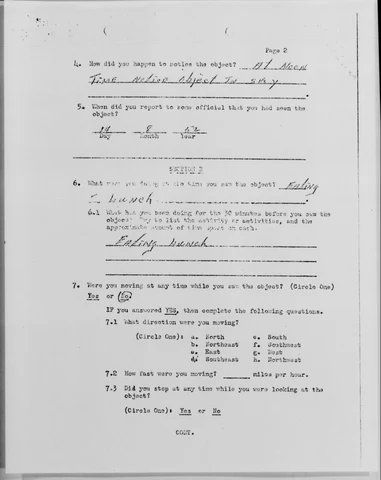 Page 2
4. How did you happen to notice the object? At Noon
Time Notice Object In Sky
5. When did you report to some official that you had seen the
object?
14 8 52
Day Month Year
SECTION B
6. What were you doing at the time you saw the object? Eating
Lunch
6.1 What had you been doing for the 30 minutes before you saw the
object? Try to list the activity or activities, and the
approximate amount of time spent in each.
Eating Lunch
7. Were you moving at any time while you saw the object? (Circle One)
Yes or No
IF you answered YES, then complete the following questions.
7.1 What direction were you moving?
(Circle One): a. North e. South
b. Northeast f. Southwest
c. East g. West
d. Southeast h. Northwest
7.2 How fast were you moving? ______ miles per hour.
7.3 Did you stop at any time while you were looking at the
object?
(Circle One): Yes or No
COPY.